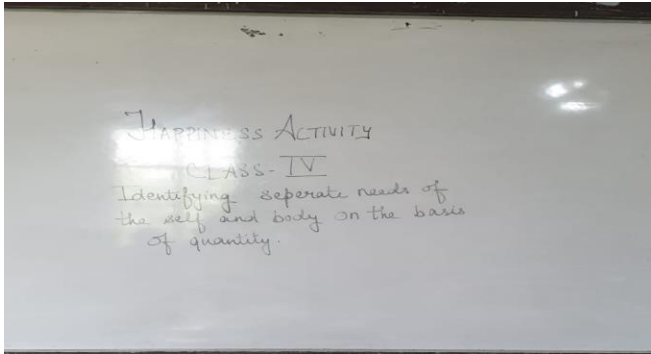 HAPPINESS ACTIVITY
CLASS - IV
Identifying seperate needs of
the self and body on the basis
of quantity.